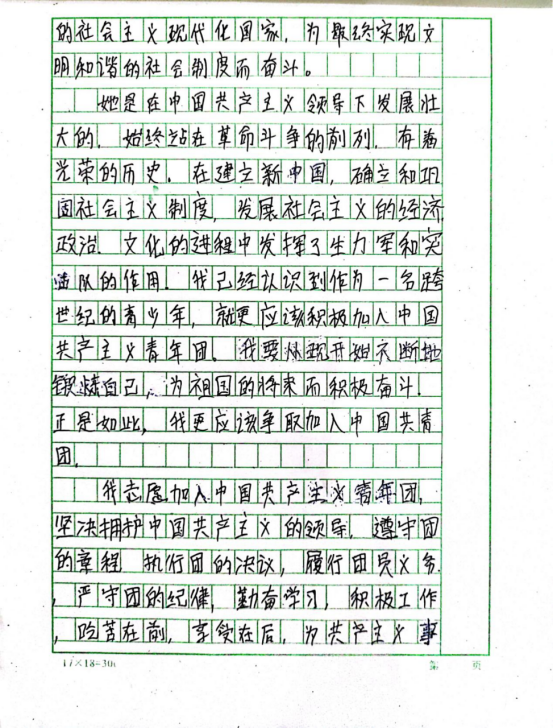 的社会主义现代化国家，为最终实现文
明和谐的社会制度而奋斗。
她是在中国共产主义领导下发展壮
大的，始终站在革命斗争的前列，有着
光荣的历史，在建立新中国，确立和巩
固社会主义制度，发展社会主义的经济
政治、文化的进程中发挥了生力军和突
击队的作用。我已经认识到作为一名跨
世纪的青少年，就更应该积极加入中国
共产主义青年团。我要从现开始不断地
锻炼自己，为祖国的将来而积极奋斗.
正是如此，我更应该争取加入中国共青
团.
我志愿加入中国共产主义青年团，
坚决拥护中国共产主义的领导，遵守团
的章程 执行团的决议，履行团员义务.
，严守团的纪律，勤奋学习，积极工作
，吃苦在前，享受在后，为共产主义事
17×18=306
第 页